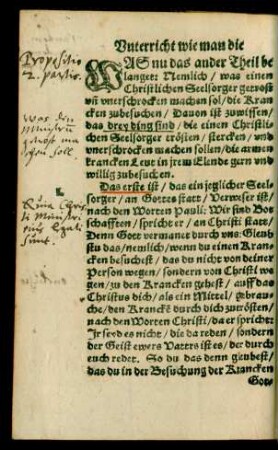 Vnterricht wie man die
WAS nu das ander Theil be
langet: Nemlich / was einen
Christlichen Seelsorger getrost
vñ vnerschrocken machen sol / die Kran
cken zubesuchen / Dauon ist zuwissen /
das drey ding sind / die einen Christli-
chen Seelsorger trösten / stercken / vnd
vnerschrocken machen sollen / die armen
krancken Leut in jrem Elende gern vnd
willig zubesuchen.
Das erste ist / das ein jeglicher Seel
sorger / an Gottes statt / Verweser ist /
nach den Worten Pauli: Wir sind Bot
schafften / spricht er / an Christi statt /
Denn Gott vermanet durch vns: Gleub
stu das / nemlich / wenn du einen Kran
cken besuchest / das du nicht von deiner
Person wegen / sondern von Christi we
gen / zu den Krancken gehest / auff das
Christus dich / als ein Mittel / gebrau-
che / den Krancken durch dich zutrösten /
nach den Worten Christi / da er spricht:
Ir seyd es nicht / die da reden / sondern
der Geist ewers Vaters ist es / der durch
euch redet. So du das denn gleubest /
das du in der Besuchung der Krancken
Gott
Propositio
2. partis.
Was den
1.